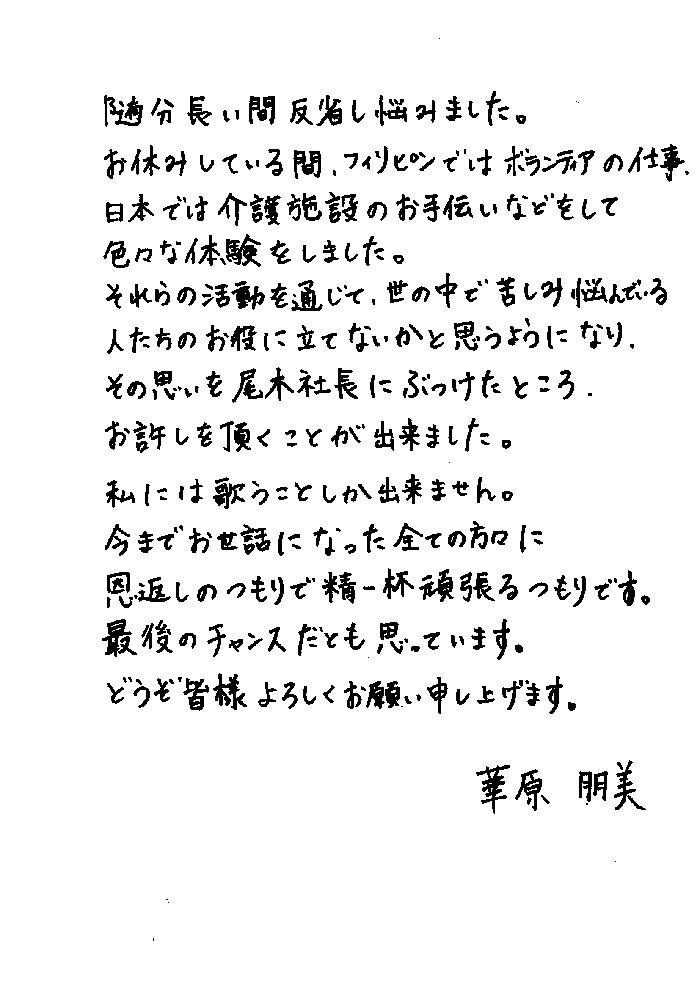 随分長い間反省し悩みました。
お休みしている間、フィリピンではボランティアの仕事、
日本では介護施設のお手伝いなどをして
色々な体験をしました。
それらの活動を通じて、世の中で苦しみ悩んでいる
人たちのお役に立てないかと思うようになり、
その思いを尾木社長にぶつけたところ、
お許しを頂くことが出来ました。
私には歌うことしか出来ません。
今までお世話になった全ての方々に
恩返しのつもりで精一杯頑張るつもりです。
最後のチャンスだとも思っています。
どうぞ皆様よろしくお願い申し上げます。
華原 朋美